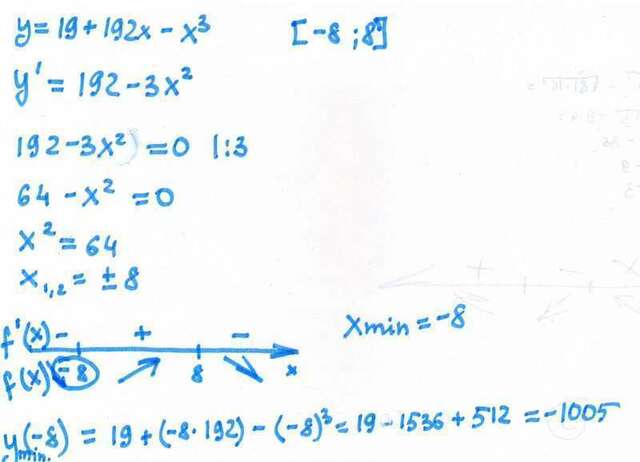 y = 19 + 192x - x³ [-8 ; 8]
y' = 192 - 3x²
192 - 3x² = 0 |:3
64 - x² = 0
x² = 64
x₁,₂ = ± 8
f'(x) - + -
xmin = -8
f(x) -8 8 x
y(-8) = 19 + (-8·192) - (-8)³ = 19 - 1536 + 512 = -1005
min.